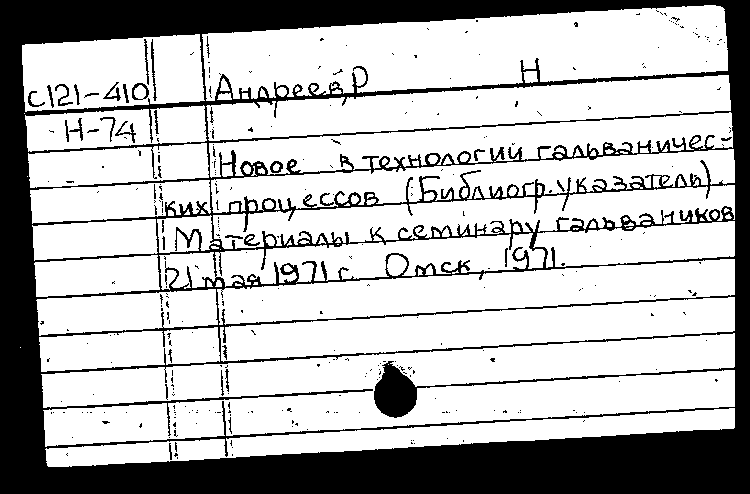 С121-410 Андреев, Р Н
Н-74
Новое в технологии гальваничес-
ких процессов (Библиогр. указатель).
Материалы к семинару гальваников
21 мая 1971 г. Омск, 1971.